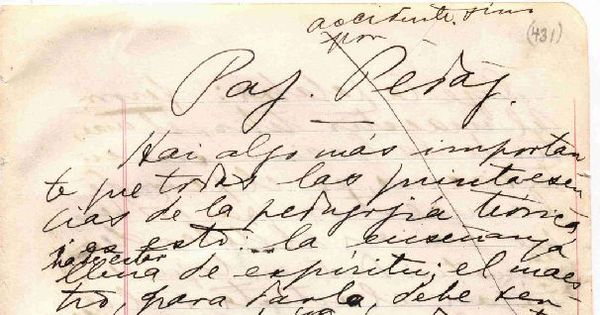 accidente. sino (431)
por
Paj. Pedág.
Hai algo más importan
te que todas las quintaesen
cias de la pedagojía teórica,
i es esto: la enseñanza
ha de estar
llena de espíritu; el maes
tro, para darla, debe sen